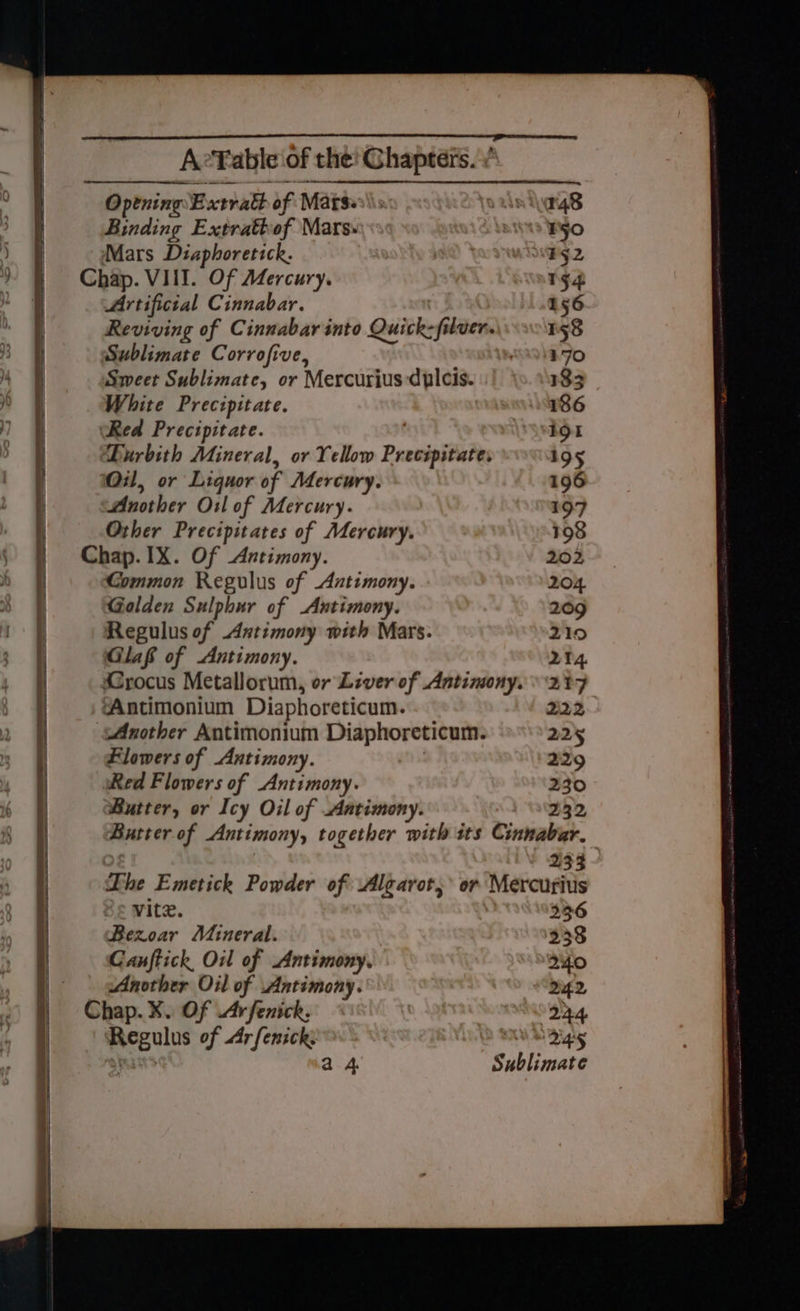 A Table of the Chapters.
Opening Extract of Mars. 148
Binding Extract of Mars. 150
Mars Diaphoretick. 152
Chap. VIII. Of Mercury. 154
Artificial Cinnabar. 156
Reviving of Cinnabar into Quick-ſilver. 158
Sublimate Corroſive, 170
Sweet Sublimate, or Mercurius dulcis. 183
White Precipitate. 186
Red Precipitate. 191
Turbith Mineral, or Yellow Precipitate. 195
Oil, or Liquor of Mercury. 196
Another Oil of Mercury. 197
Other Precipitates of Mercury. 198
Chap. IX. Of Antimony. 202
Common Regulus of Antimony. 204
Golden Sulphur of Antimony. 209
Regulus of Antimony with Mars. 210
Glaſs of Antimony. 214
Crocus Metallorum, or Liver of Antimony. 217
Antimonium Diaphoreticum. 222
Another Antimonium Diaphoreticum. 225
Flowers of Antimony. 229
Red Flowers of Antimony. 230
Butter, or Icy Oil of Antimony. 232
Butter of Antimony, together with its Cinnabar.
233
The Emetick Powder of Algarot, or Mercurius
vitæ. 236
Bezoar Mineral. 238
Cauſtick Oil of Antimony. 240
Another Oil of Antimony. 242
Chap. X. Of Arſenick. 244
Regulus of Arſenick. 245
a 4 Sublimate